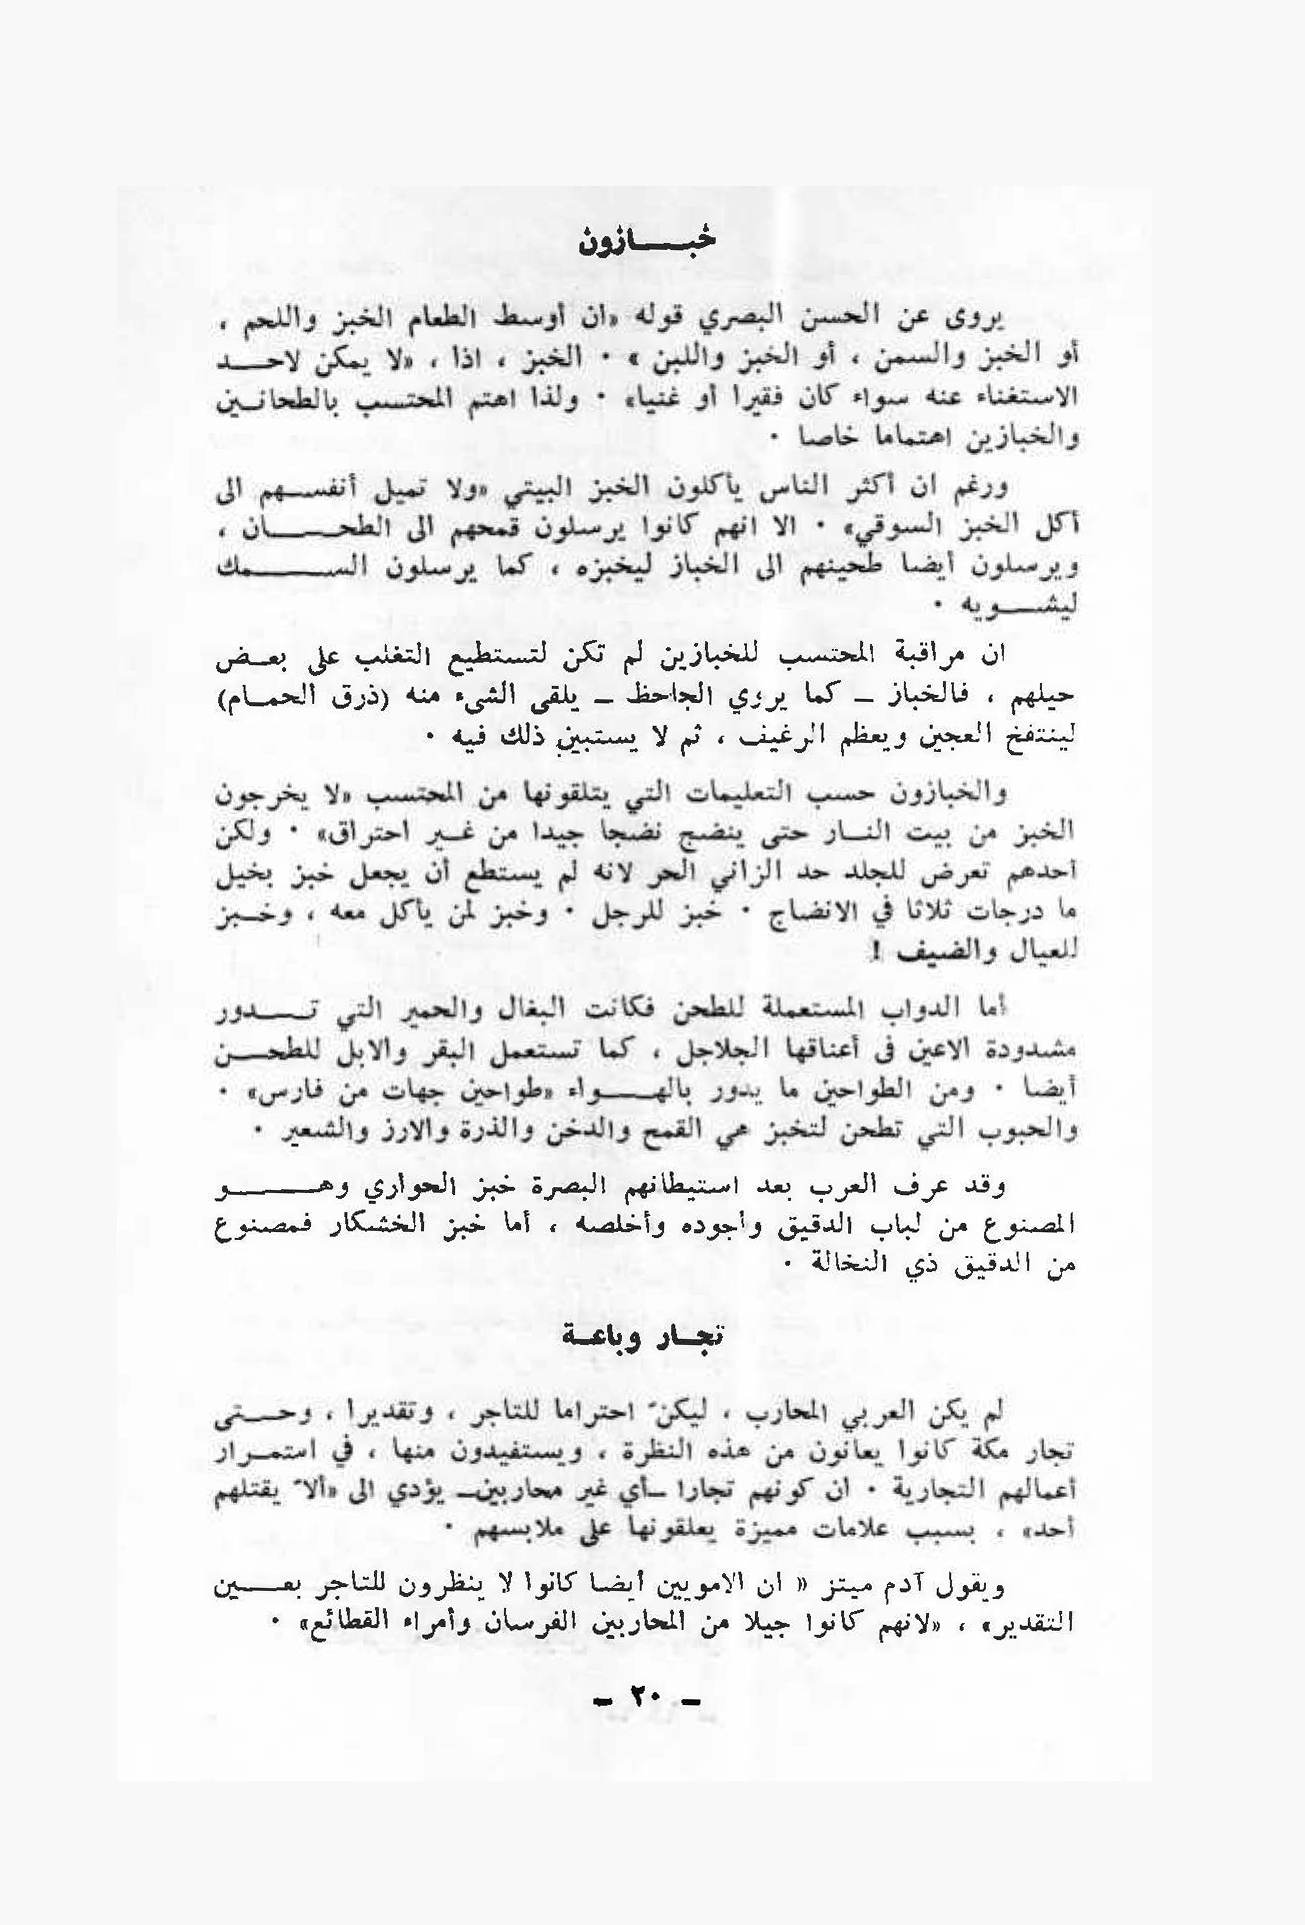 خبـــازون
يروى عن الحسن البصري قوله «ان أوسط الطعام الخبز واللحم ،
أو الخبز والسمن ، أو الخبز واللبن » . الخبز ، اذا ، «لا يمكن لاحــد
الاستغناء عنه سواء كان فقيرا أو غنيا» . ولذا اهتم المحتسب بالطحانـين
والخبازين اهتماما خاصا .
ورغم ان أكثر الناس يأكلون الخبز البيتي «ولا تميل أنفســهم الى
أكل الخبز السوقي» . الا انهم كانوا يرسلون قمحهم الى الطحـــان ،
ويرسلون أيضا طحينهم الى الخباز ليخبزه ، كما يرسلون الســـمك
ليشــويه .
ان مراقبة المحتسب للخبازين لم تكن لتستطيع التغلب على بعـض
حيلهم ، فالخباز ـ كما يروي الجاحظ ـ يلقى الشيء منه (ذرق الحمـام)
لينتفخ العجين ويعظم الرغيف ، ثم لا يستبين ذلك فيه .
والخبازون حسب التعليمات التي يتلقونها من المحتسب «لا يخرجون
الخبز من بيت النـار حتى ينضج نضجا جيدا من غـير احتراق» . ولكن
أحدهم تعرض للجلد حد الزاني الحر لانه لم يستطع أن يجعل خبز بخيل
ما درجات ثلاثا في الانضاج . خبز للرجل . وخبز لمن يأكل معه ، وخـبز
للعيال والضيف !
أما الدواب المستعملة للطحن فكانت البغال والحمير التي تــدور
مشدودة الاعين فى أعناقها الجلاجل ، كما تستعمل البقر والابل للطحــن
أيضا . ومن الطواحين ما يدور بالهــواء «طواحين جهات من فارس» .
والحبوب التي تطحن لتخبز هي القمح والدخن والذرة والارز والشعير .
وقد عرف العرب بعد استيطانهم البصرة خبز الحواري وهـــو
المصنوع من لباب الدقيق وأجوده وأخلصه ، أما خبز الخشكار فمصنوع
من الدقيق ذي النخالة .
تجـار وباعـة
لم يكن العربي المحارب ، ليكنّ احتراما للتاجر ، وتقديرا ، وحــتى
تجار مكة كانوا يعانون من هذه النظرة ، ويستفيدون منها ، في استمـرار
أعمالهم التجارية . ان كونهم تجارا ـأي غير محاربينـ يؤدي الى «ألاّ يقتلهم
أحد» ، بسبب علامات مميزة يعلقونها على ملابسهم .
ويقول آدم ميتز « ان الامويين أيضا كانوا لا ينظرون للتاجر بعــين
التقدير» ، «لانهم كانوا جيلا من المحاربين الفرسان وأمراء القطائع» .
ـ ٢٠ ـ